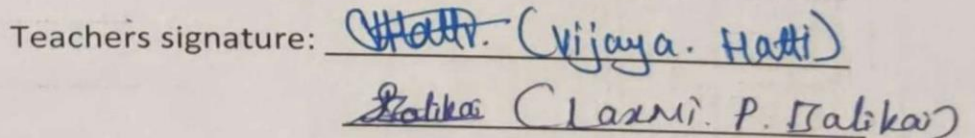 Teachers signature: VHatti. (Vijaya. Hatti)
Balikai (Laxmi. P. Balikai)